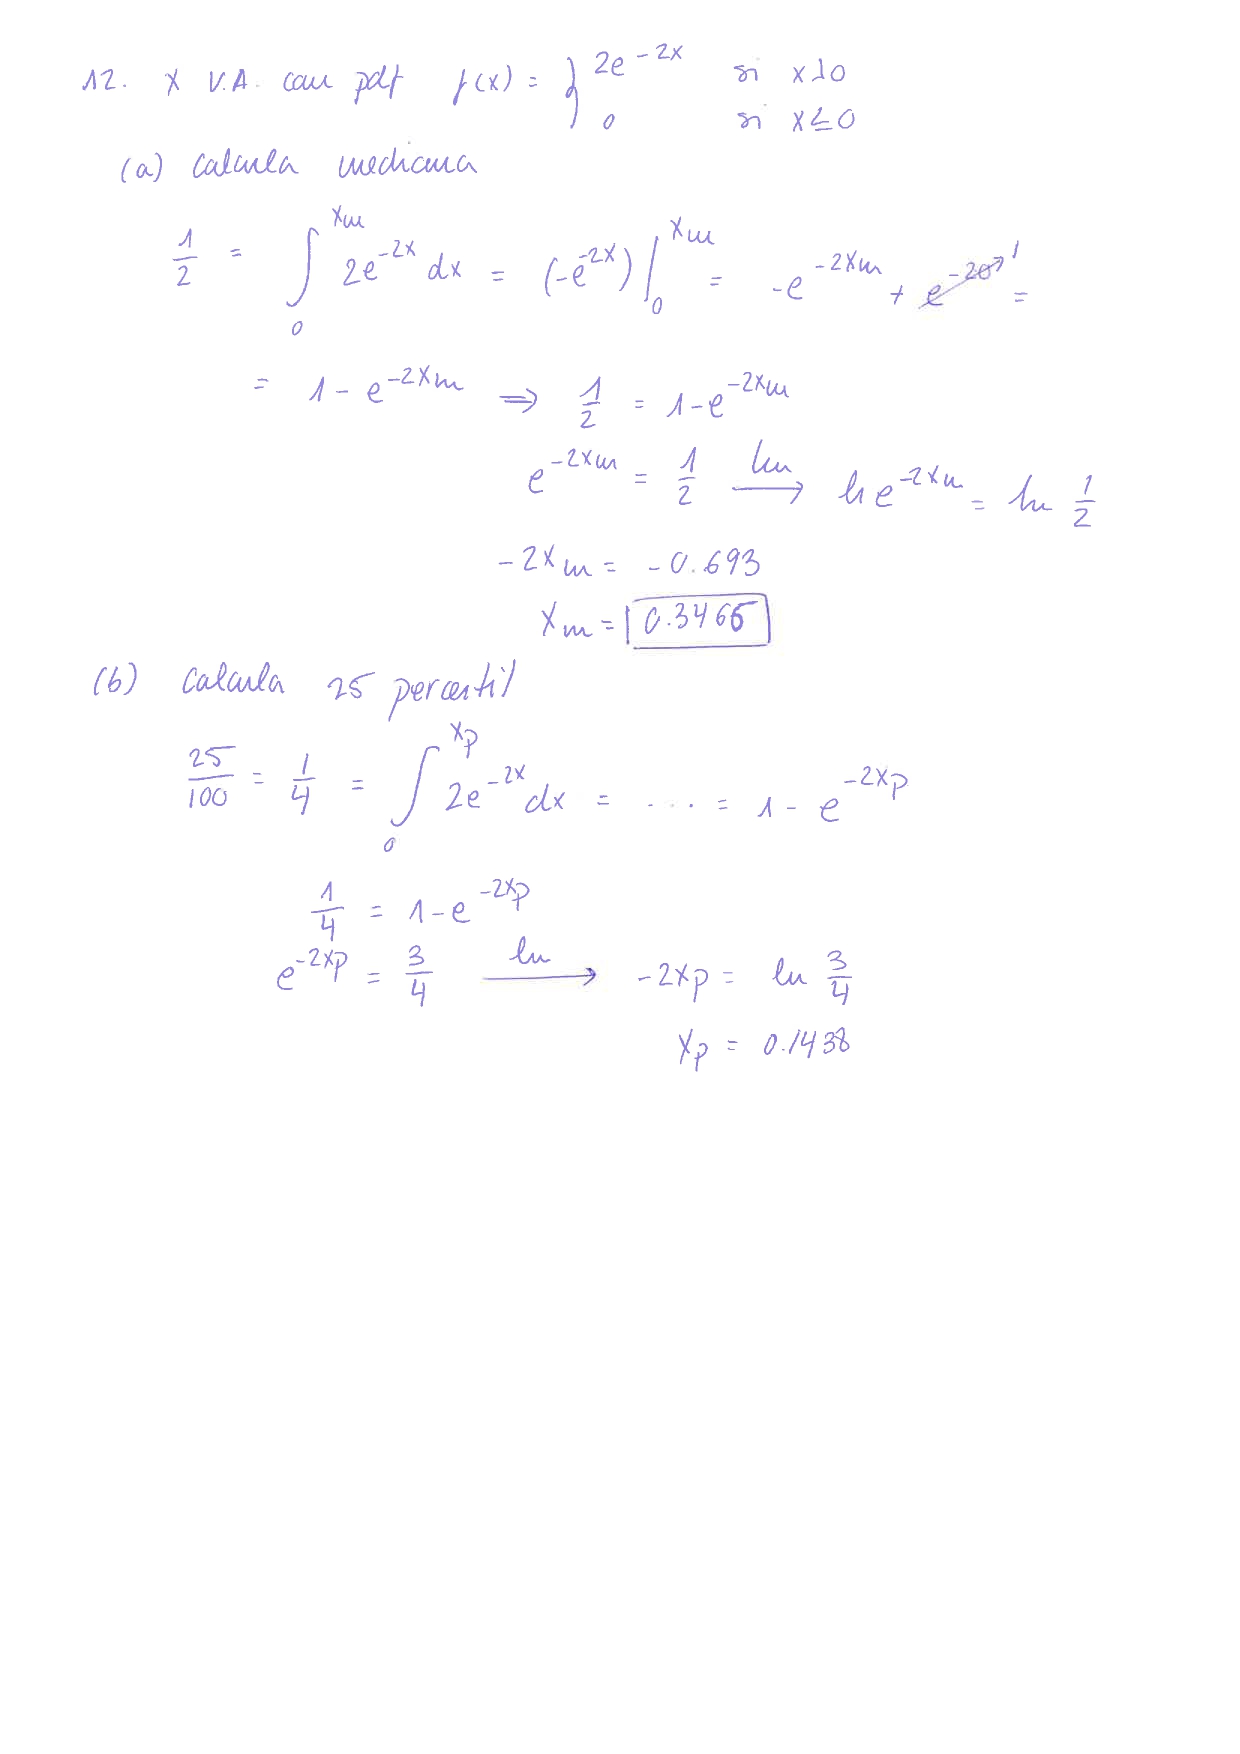 12. X V.A. con pdf f(x) = { 2e^{-2x} si x>0
0 si x≤0
(a) Calcula mediana
1/2 = ∫_0^{x_m} 2e^{-2x} dx = (-e^{-2x}) |_0^{x_m} = -e^{-2x_m} + e^{-2·0} → 1 =
= 1 - e^{-2x_m} ⇒ 1/2 = 1 - e^{-2x_m}
e^{-2x_m} = 1/2 —ln→ ln e^{-2x_m} = ln 1/2
-2x_m = -0.693
x_m = 0.3465
(b) Calcula 25 percentil
25/100 = 1/4 = ∫_0^{x_p} 2e^{-2x} dx = ... = 1 - e^{-2x_p}
1/4 = 1 - e^{-2x_p}
e^{-2x_p} = 3/4 —ln→ -2x_p = ln 3/4
x_p = 0.1438